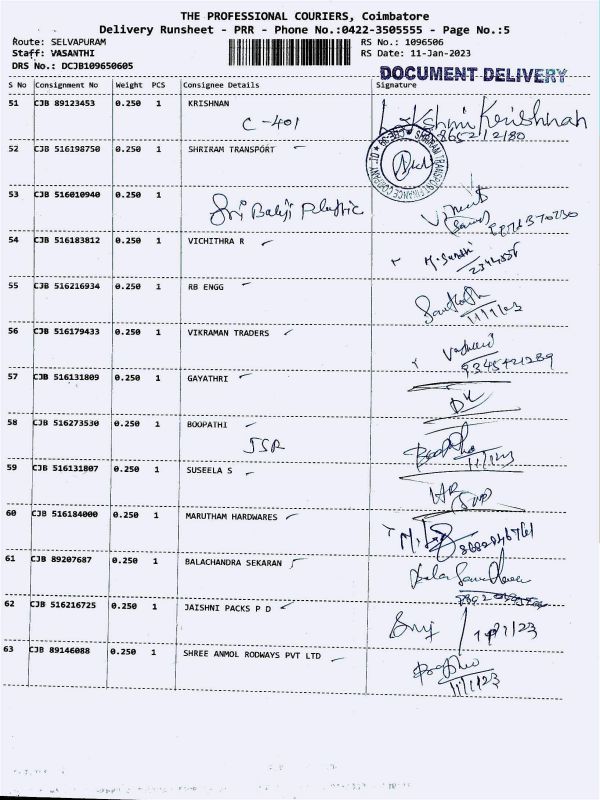 THE PROFESSIONAL COURIERS, Coimbatore
Delivery Runsheet - PRR - Phone No.:0422-3505555 - Page No.:5
Route: SELVAPURAM RS No.: 1096506
Staff: VASANTHI RS Date: 11-Jan-2023
DRS No.: DCJB109650605
DOCUMENT DELIVERY
S No Consignment No Weight PCS Consignee Details Signature
51 CJB 89123453 0.250 1 KRISHNAN
C-401 Lakshmi Krishnan
52 CJB 516198750 0.250 1 SHRIRAM TRANSPORT
53 CJB 516010940 0.250 1
Sri Balaji Plastic
54 CJB 516183812 0.250 1 VICHITHRA R
55 CJB 516216934 0.250 1 RB ENGG
Santhosh
11/1/23
56 CJB 516179433 0.250 1 VIKRAMAN TRADERS
57 CJB 516131809 0.250 1 GAYATHRI
58 CJB 516273530 0.250 1 BOOPATHI
JSR
11/1/23
59 CJB 516131807 0.250 1 SUSEELA S
60 CJB 516184000 0.250 1 MARUTHAM HARDWARES
61 CJB 89207687 0.250 1 BALACHANDRA SEKARAN
62 CJB 516216725 0.250 1 JAISHNI PACKS P D
63 CJB 89146088 0.250 1 SHREE ANMOL RODWAYS PVT LTD
11/1/23